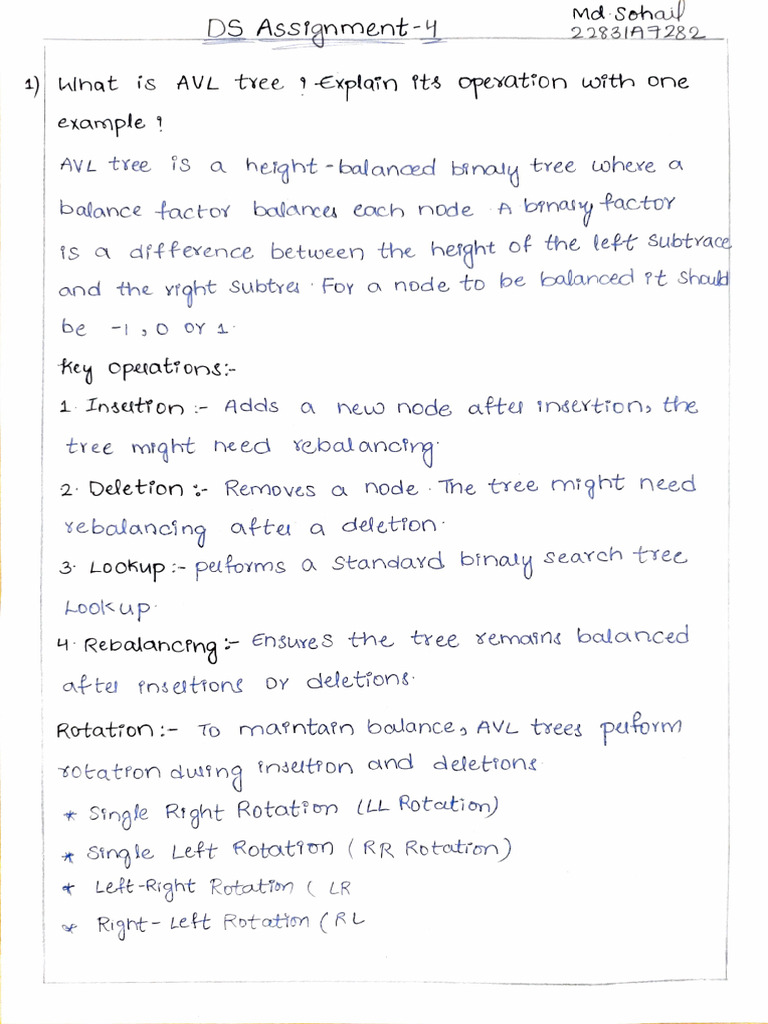 DS Assignment-4
Md. Sohail
22831A7282
1) What is AVL tree ? Explain its operation with one
example ?
AVL tree is a height-balanced binary tree where a
balance factor balances each node. A binary factor
is a difference between the height of the left subtrace
and the right subtres. For a node to be balanced it should
be -1, 0 or 1.
Key operations:-
1. Insertion :- Adds a new node after insertion, the
tree might need rebalancing.
2. Deletion :- Removes a node. The tree might need
rebalancing after a deletion.
3. Lookup :- performs a standard binary search tree
Lookup.
4. Rebalancing :- Ensures the tree remains balanced
after insertions or deletions.
Rotation :- To maintain balance, AVL trees perform
rotation during insertion and deletions.
* Single Right Rotation (LL Rotation)
* Single Left Rotation (RR Rotation)
* Left-Right Rotation ( LR
* Right-Left Rotation (RL